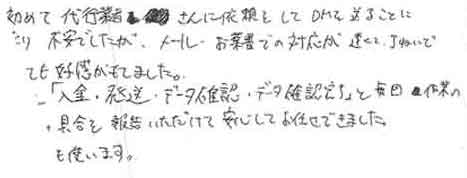 初めて代行業者さんに依頼をしてDMを送ることに
なり不安でしたが、メール・お葉書での対応が速くて、丁ねいで
ても好感がもてました。
「入金・発送・データ確認・データ確認完了」と毎回作業の
具合を報告いただけて安心してお任せできました。
も使います。